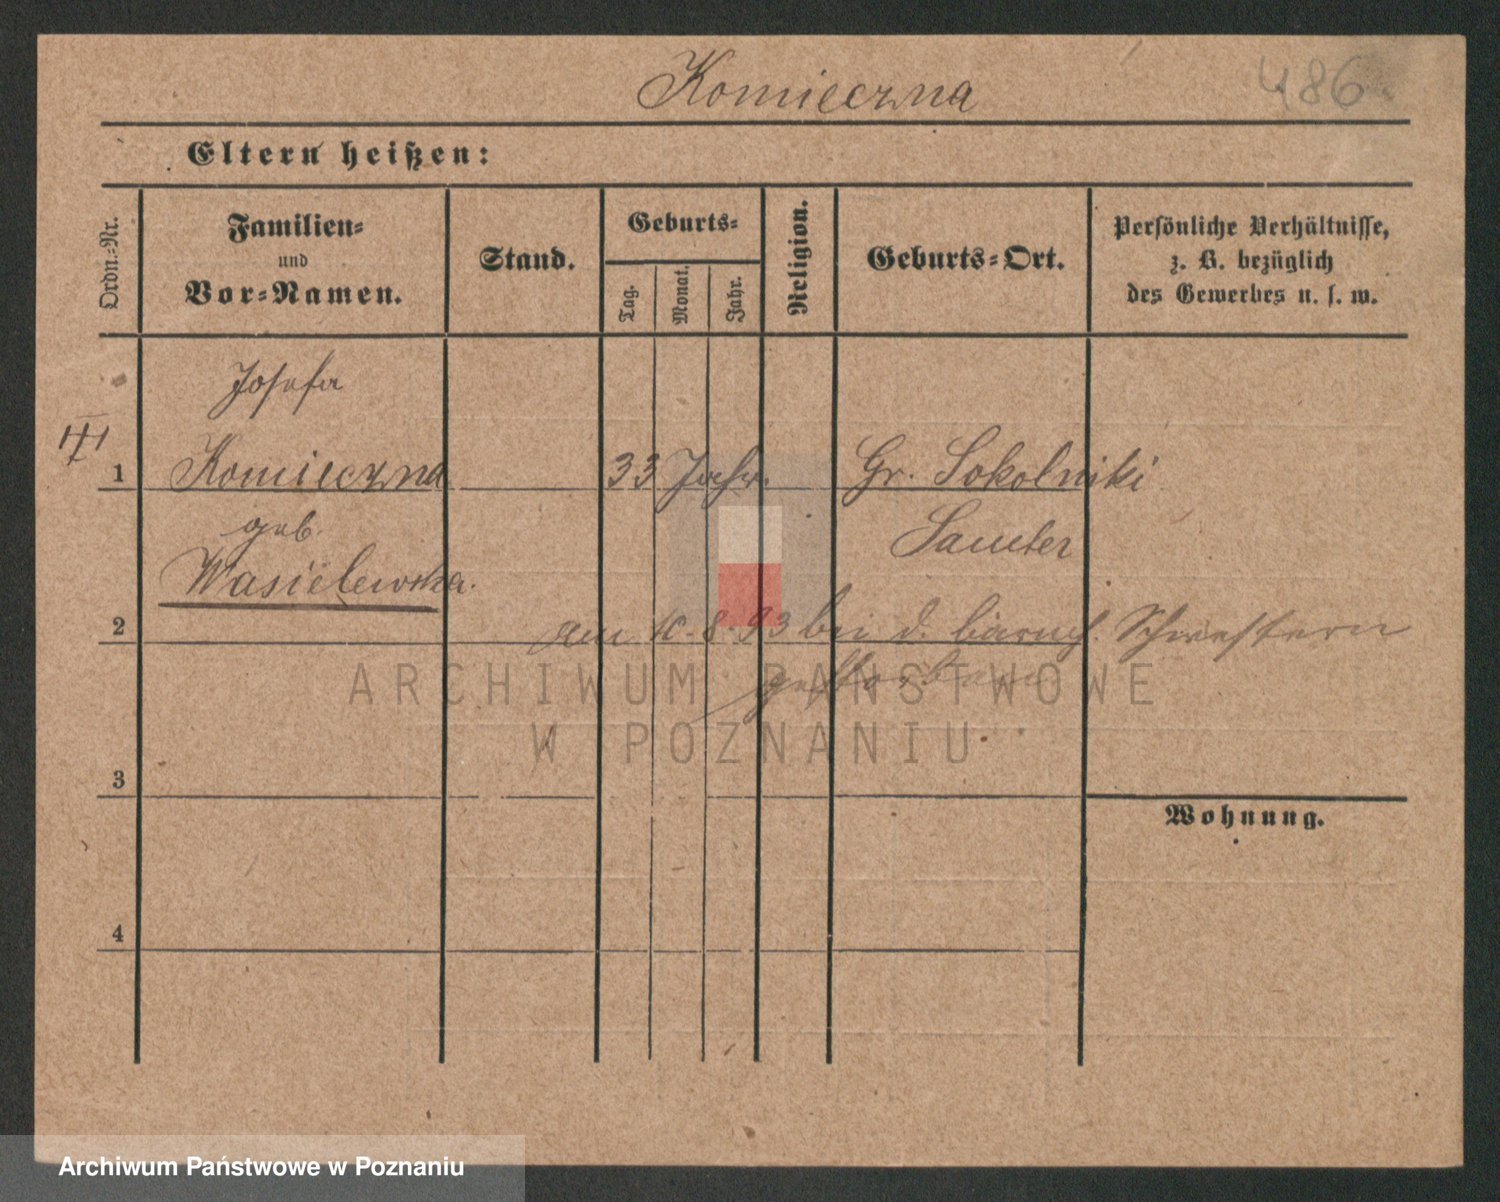 Komieczna
486
Eltern heißen:
Ordn.-Nr.
Familien-
und
Vor-Namen.
Stand.
Geburts-
Tag.
Monat.
Jahr.
Religion.
Geburts-Ort.
Persönliche Verhältnisse,
z. B. bezüglich
des Gewerbes u. s. w.
Josefa
1 Komieczna 33 Jahr. Gr. Sokolniki
geb. Samter
Wasielewska.
2 am 10.8.93 bei d. barmh. Schwestern
gestorben
ARCHIWUM PAŃSTWOWE
W POZNANIU
3
Wohnung.
4
Archiwum Państwowe w Poznaniu